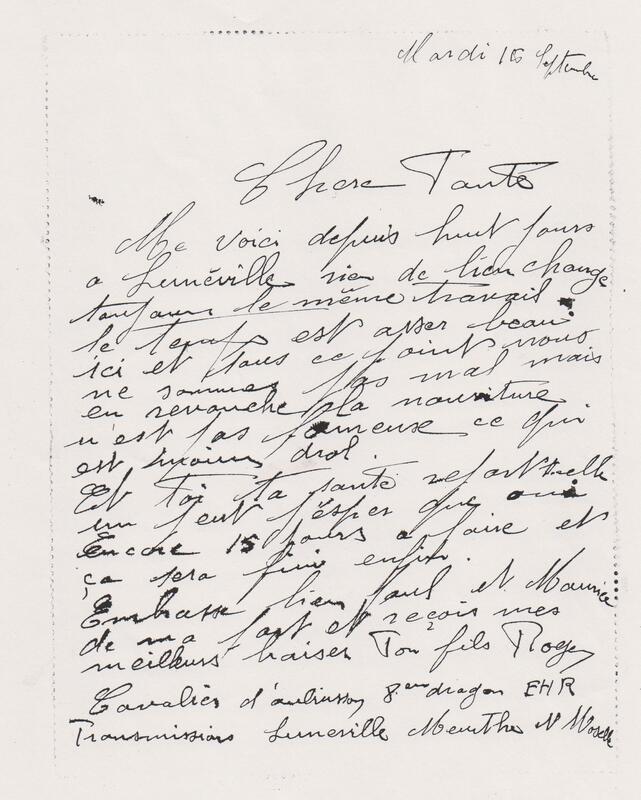 Mardi 15 Septembre
Chere Tante
Me voici depuis huit jours
a Lunéville rien de bien change
toujours le même travail
le temps est asser beau
ici et sous ce point nous
ne sommes pas mal mais
en revanche la nourriture
n'est pas fameuse ce qui
est moins drol.
Et Toi ta santé repart telle
un peut j'esper que oui
Encore 15 jours a faire et
ça sera fini enfin.
Embrasse bien Paul et Maurice
de ma part et reçois mes
meilleurs baiser Ton fils Roger
Cavalier d'aubusson 8em dragon EHR
Transmissions Luneville Meurthe N Moselle